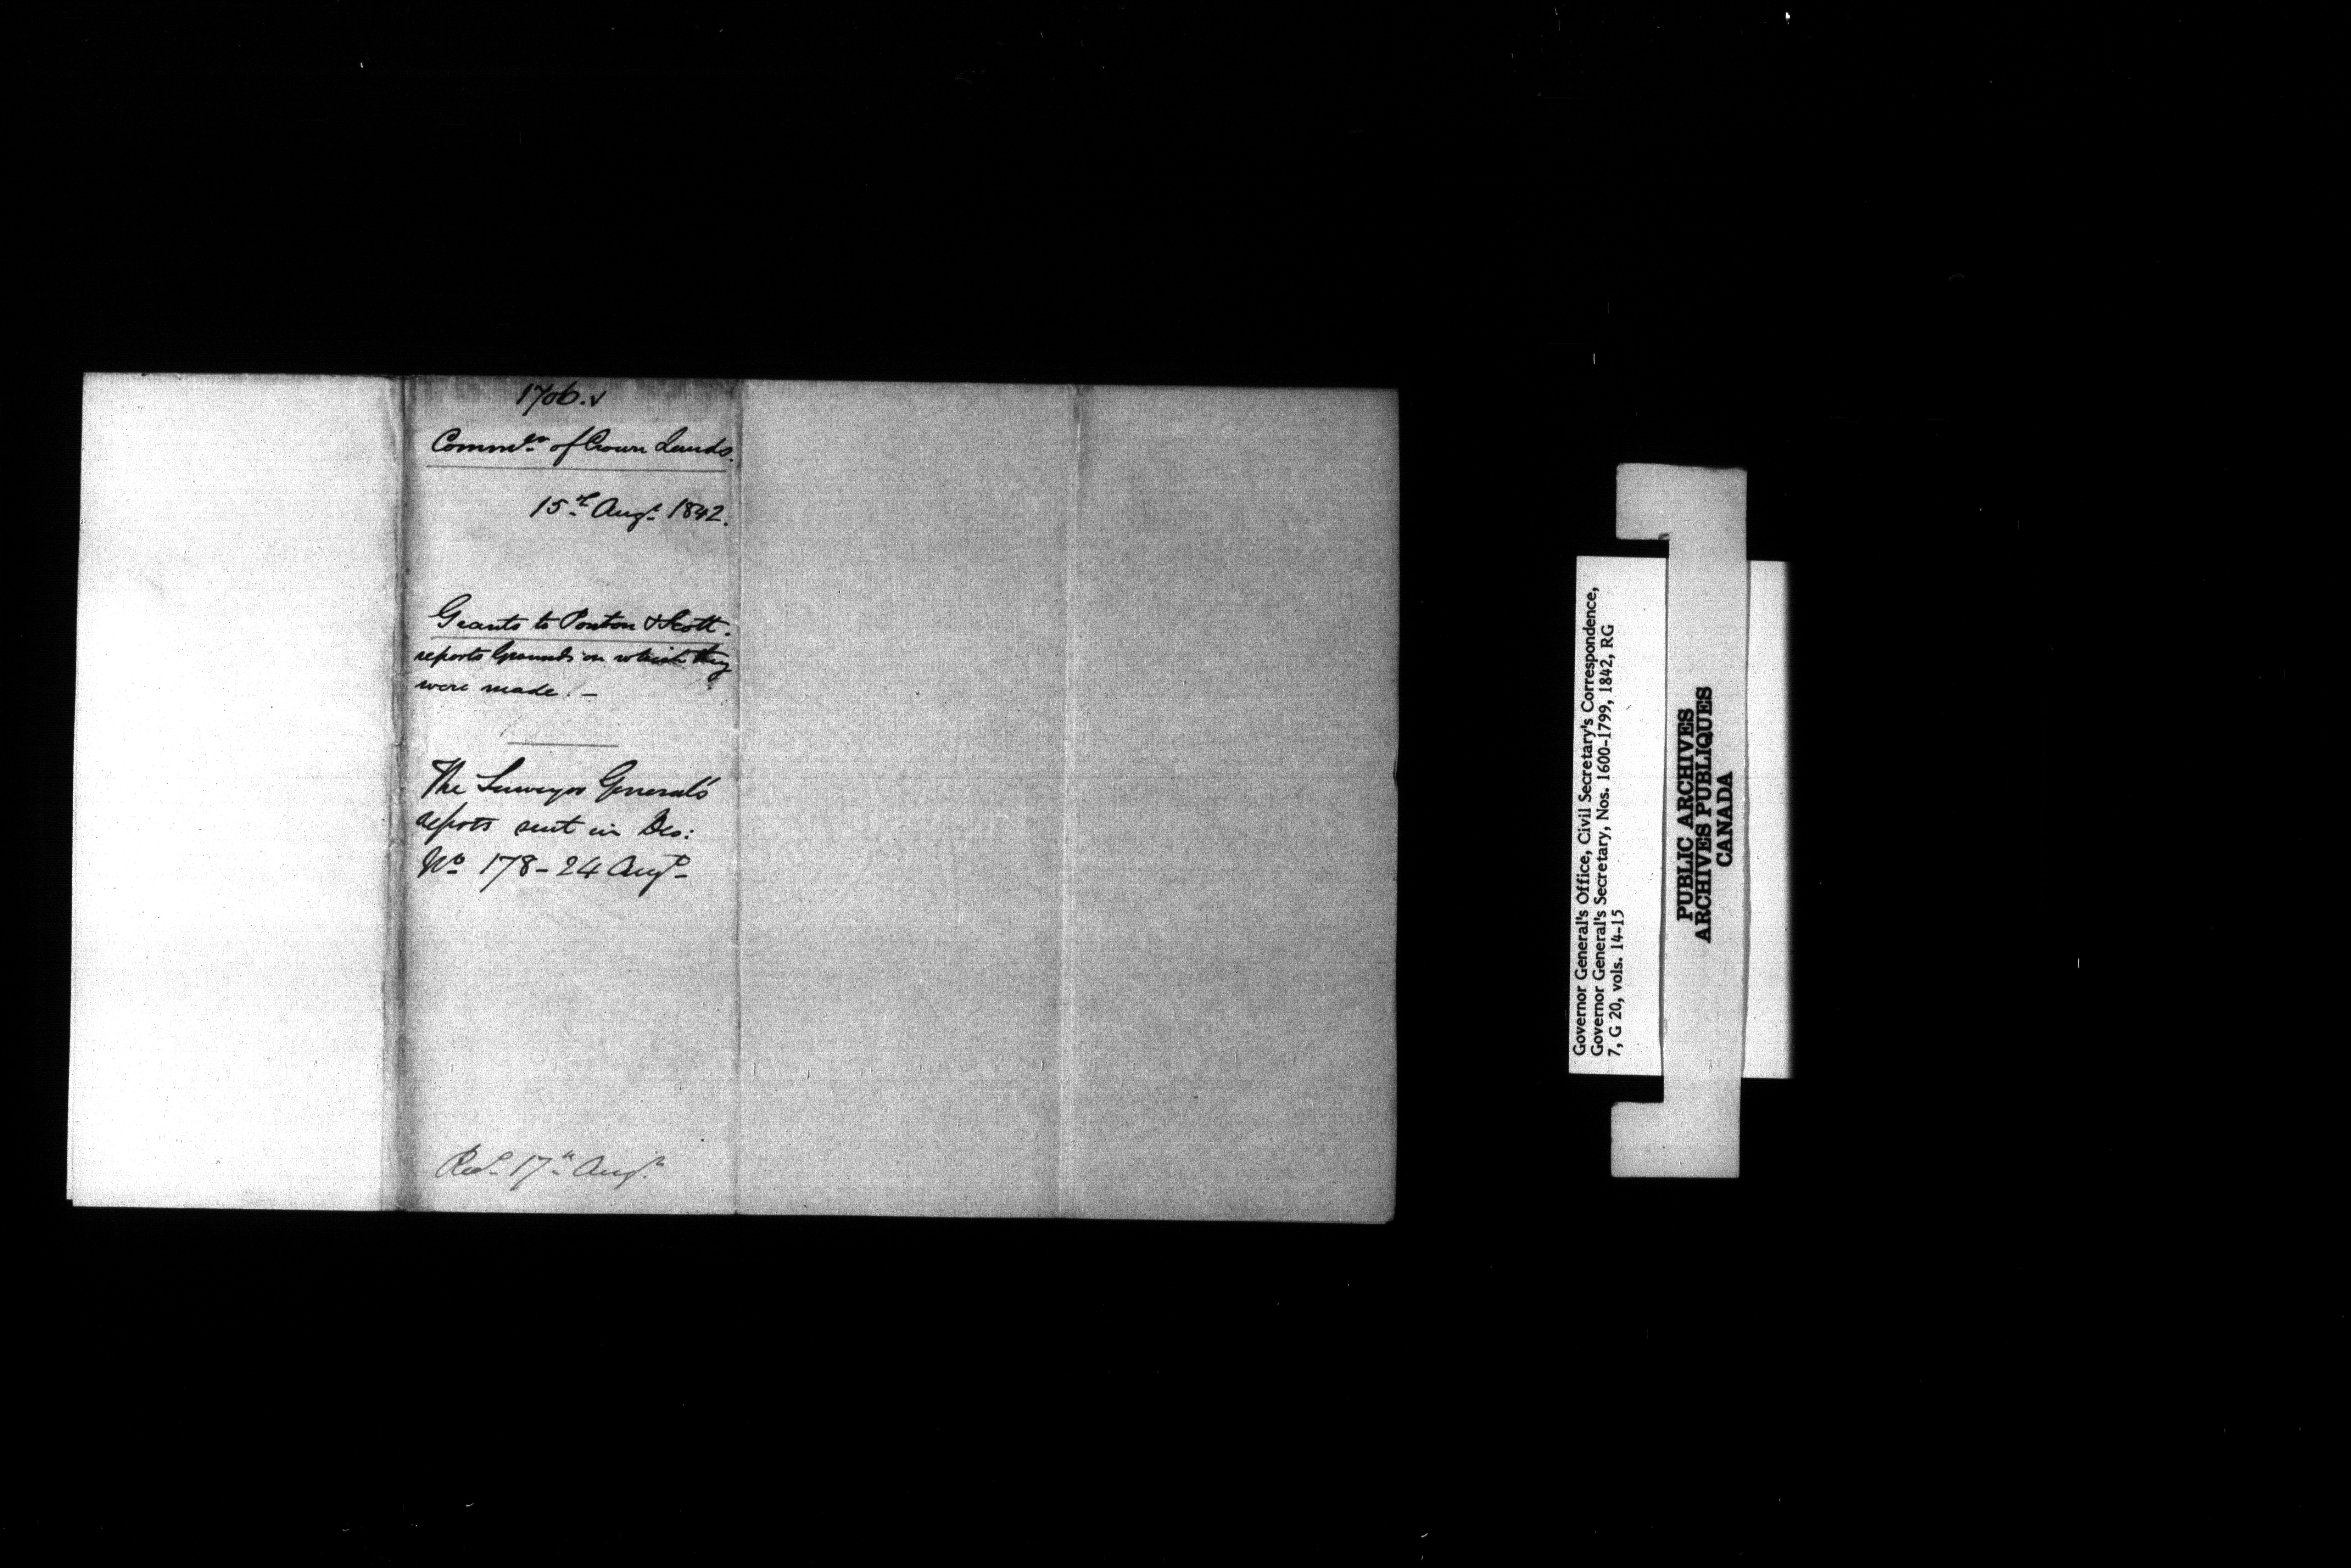 1706. v
Commr. of Crown Lands.
15th Augt. 1842.
Grants to Ponton & Scott.
reports Grounds on which they
were made. —
The Surveyor General's
reports sent in Des:
No 178 - 24 Augt
Recd. 17th Augt.
Governor General's Office, Civil Secretary's Correspondence,
Governor General's Secretary, Nos. 1600-1799, 1842, RG
7, G 20, vols. 14-15
PUBLIC ARCHIVES
ARCHIVES PUBLIQUES
CANADA